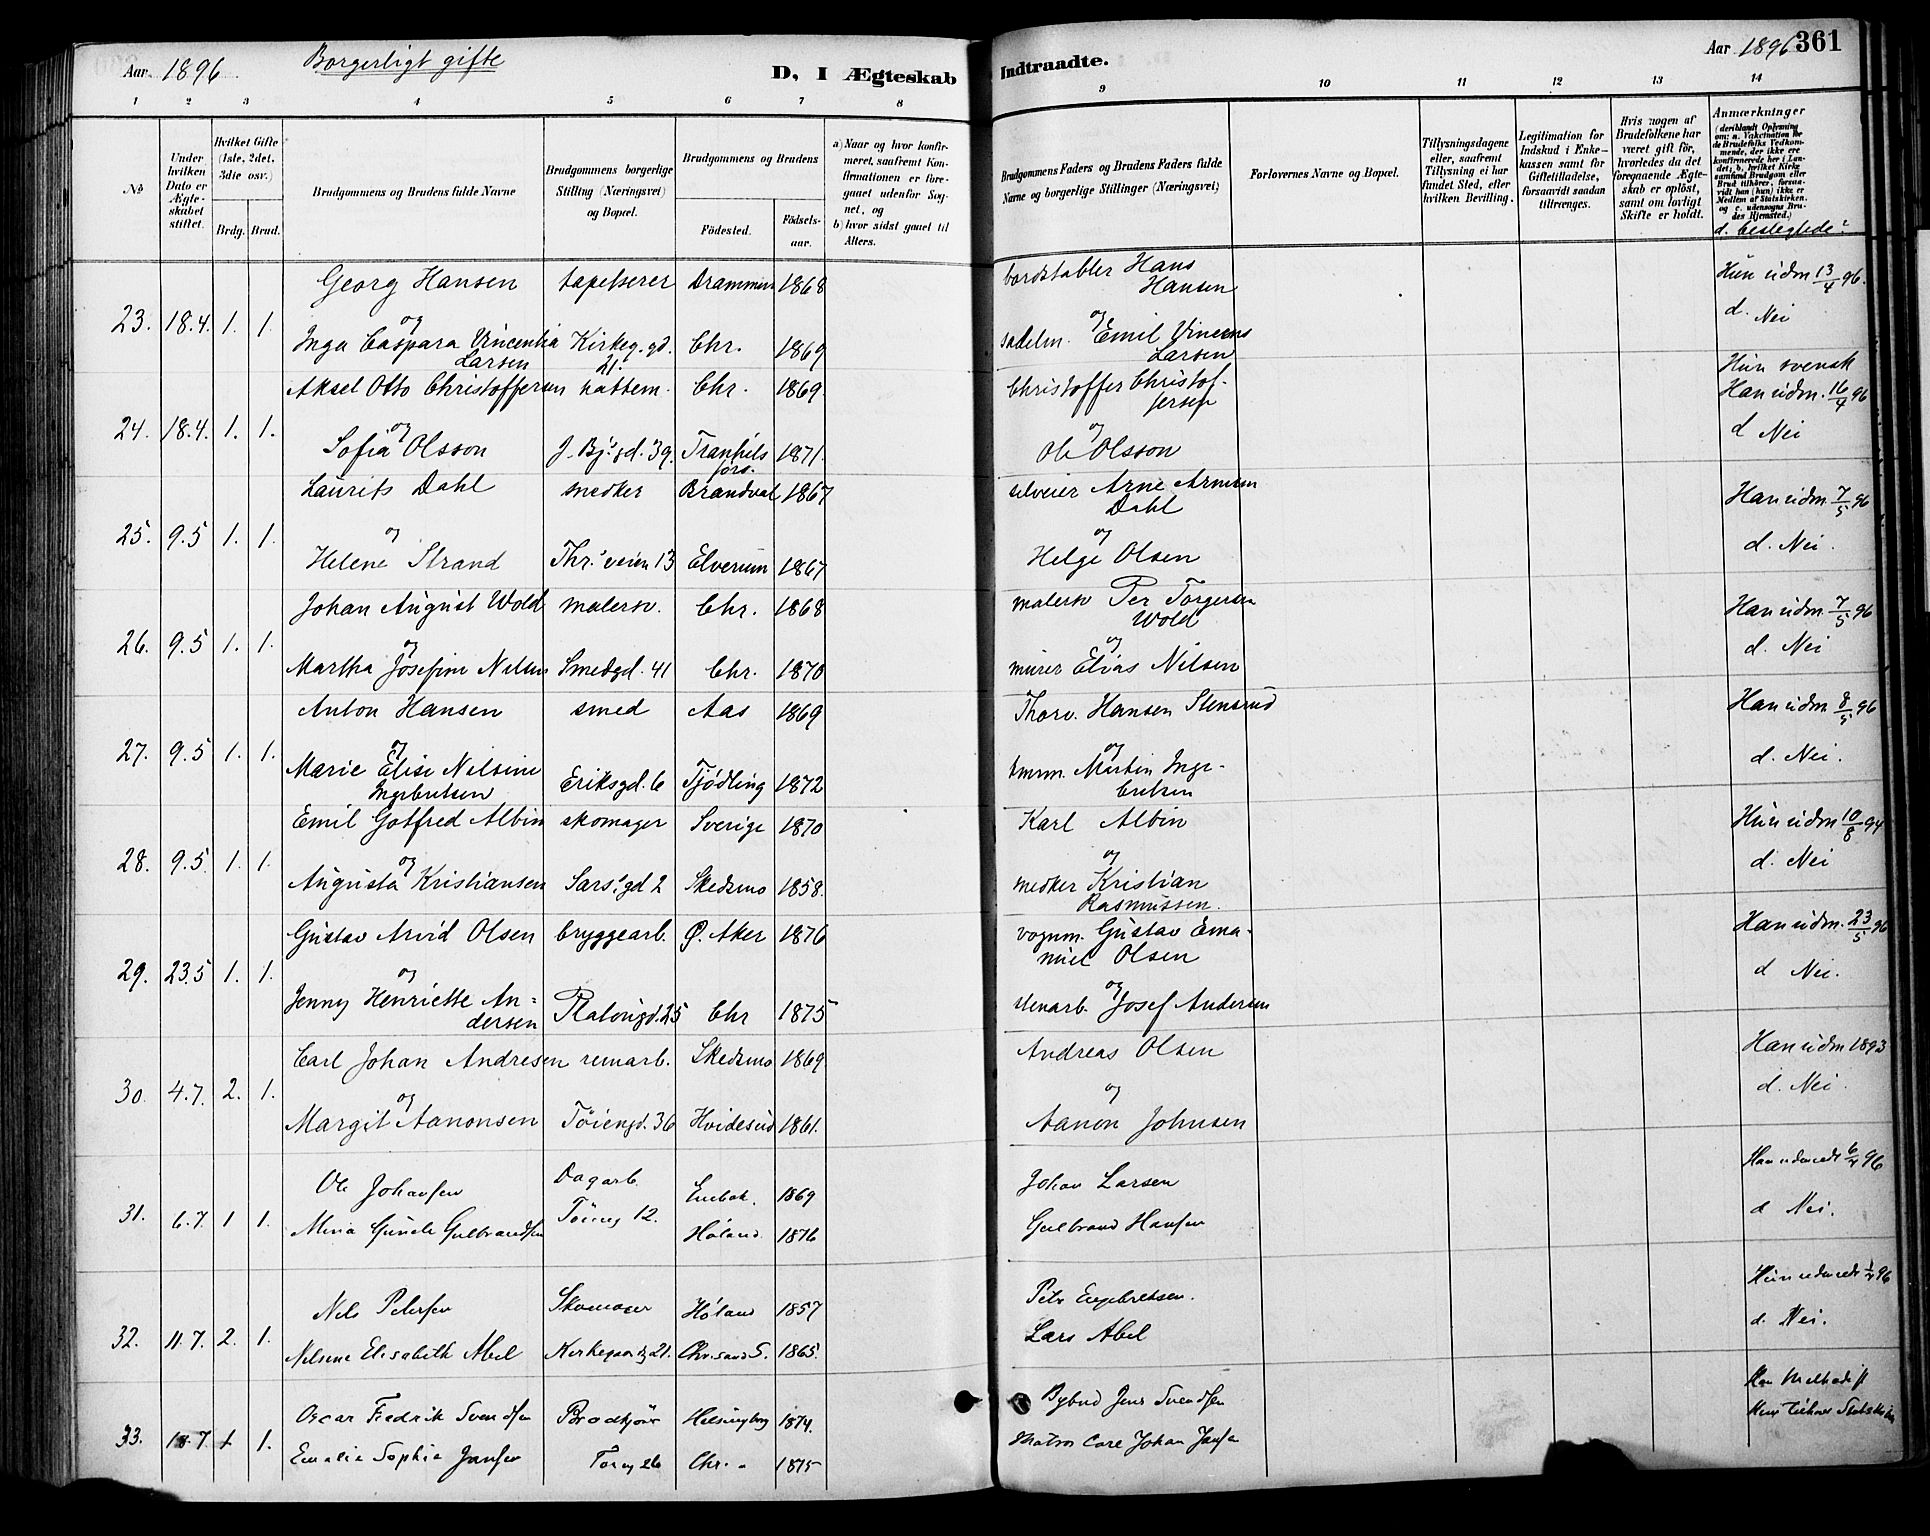 Aar 1896. Borgerligt gifte D, I Ægteskab
Indtraadte. Aar 1896 361
1 2 3 4 5 6 7 8
9 10 11 12 13 14
No
Under hvilken Dato er Ægteskabet stiftet.
Hvilket Gifte (1ste, 2det, 3die osv.)
Brdg. Brud.
Brudgommens og Brudens fulde Navne
Brudgommens borgerlige Stilling (Næringsvei) og Bopæl.
Brudgommens og Brudens
Fødested. Fødselsaar.
a) Naar og hvor konfirmeret, saafremt Konfirmationen er foregaaet udenfor Sognet, og
b) hvor sidst gaaet til Alters.
Brudgommens Faders og Brudens Faders fulde Navne og borgerlige Stillinger (Næringsvei)
Forlovernes Navne og Bopæl.
Tillysningsdagene eller, saafremt Tillysning ei har fundet Sted, efter hvilken Bevilling.
Legitimation for Indskud i Enkekassen samt for Giftetilladelse, forsaavidt saadan tiltrænges.
Hvis nogen af Brudefolkene har været gift før, hvorledes da det foregaaende Ægteskab er opløst, samt om lovligt Skifte er holdt.
Anmærkninger
d. beslegtede?
Georg Hansen tapetserer Drammen 1868 bordstabler Hans Hansen Hun udm 13/4 96.
23. 18.4. 1. 1. og og d. Nei
Inga Caspara Vincentia Larsen Kirkeg.gd. 21. Chr. 1869 sadelm. Emil Vincens Larsen
Aksel Otto Christoffersen hattem. Chr. 1869. Christoffer Christoffersen Hun svensk
Han udm. 16/4 96
24. 18.4. 1. 1. og og d Nei
Sofia Olsson J. Bj's gd. 39. 1871. Ole Olsson
Laurits Dahl snedker Brandval 1867 selveier Arne Arnesen Dahl Han udm 7/5 96
25. 9.5 1. 1. og og d. Nei.
Helene Strand Thr.' veien 13 Elverum 1867 Helge Olsen
Johan August Wold malersv. Chr. 1868 malersv Per Torgersen Wold Han udm. 7/5 96
26. 9.5 1. 1. og og d. Nei
Martha Josefine Nilsen Smedgd. 41 Chr. 1870 murer Elias Nilsen
Anton Hansen smed Aas 1869 Thorv. Hansen Stensrud Han udm 8/5 96
27. 9.5 1. 1. og og d. Nei.
Marie Elise Nilsine Ingebretsen Eriksgd. 6 Tjødling 1872 tmrm. Martin Ingebretsen
Emil Gotfred Albin skomager Sverige 1870 Karl Albin Hun udm 10/8 94
28. 9.5 1. 1. og og d. Nei
Augusta Kristiansen Sars' gd 2 Skedsmo 1858. snedker Kristian Rasmussen.
Gustav Arvid Olsen bryggearb. Ø. Aker 1876 vognm. Gustav Emanuel Olsen Han udm. 23/5 96
29. 23.5 1. 1. og og d Nei.
Jenny Henriette Andersen Platougd. 25 Chr 1875 stenarb. Josef Andersen
Carl Johan Andresen remarb. Skedsmo 1869 Andreas Olsen Han udm 1893
30. 4.7. 2. 1. og og d. Nei.
Margit Aanonsen Tøiengd. 36 Hvidesud 1861. Aanon Johnsen
Ole Johansen Dagarb. Enebak. 1869 Johan Larsen 96
31. 6.7. 1 1. Tøieng 12. d Nei.
Mina Gulbrandsen Høland 1876 Gulbrand Hansen
Nils Petersen Skomager Høland 1857 Petr Engebretsen. 96
32. 11.7. 2. 1. d. Nei.
Nilsine Elisabeth Abel Kirkegaardg 21. Chr.sand S. 1865. Lars Abel
Oscar Fredrik Svendsen Brødkjører Helsingborg 1874. Bybud Jens Svendsen Han Methodist
33. 18.7 1 1.
Emalie Sophie Jansen Chr.a 1875 Matros Carl Johan Jansen